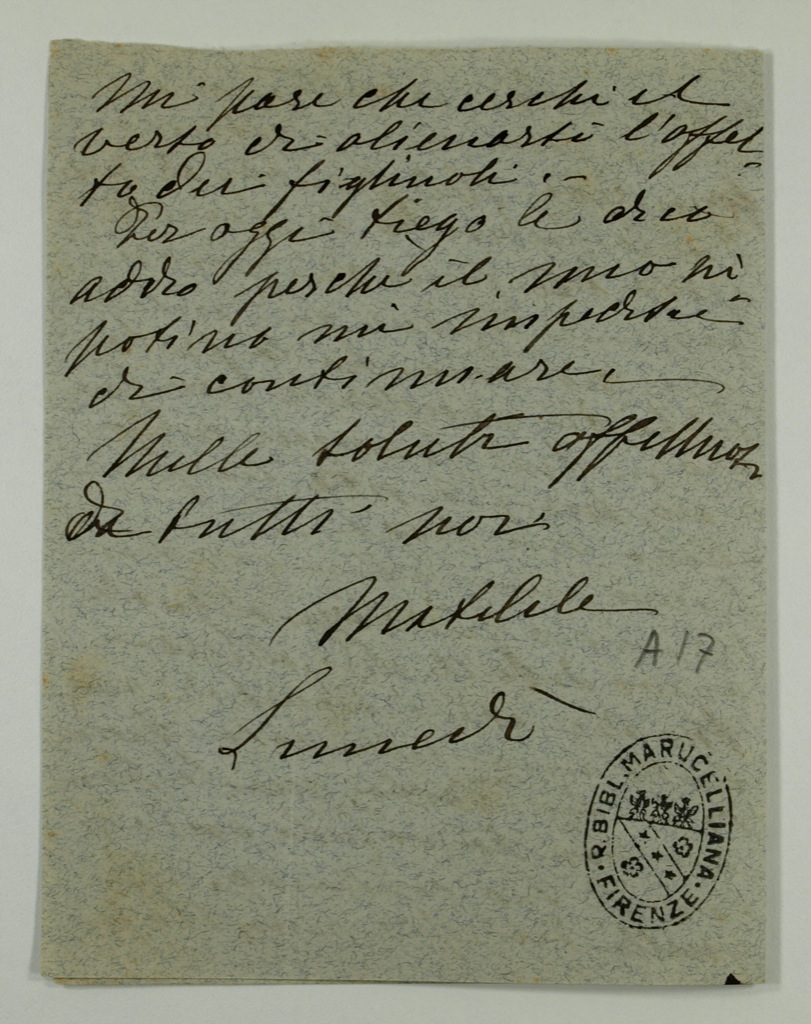 Mi pare che cerchi il
verso di alienarsi l'affet-
to dei figliuoli. -
Per oggi le dico
addio perchè il mio ni
potino mi impedisce
di continuare.
Mille saluti affettuosi
da tutti noi
Matilde
Lunedì
A17
R. BIBL. MARUCELLIANA · FIRENZE ·